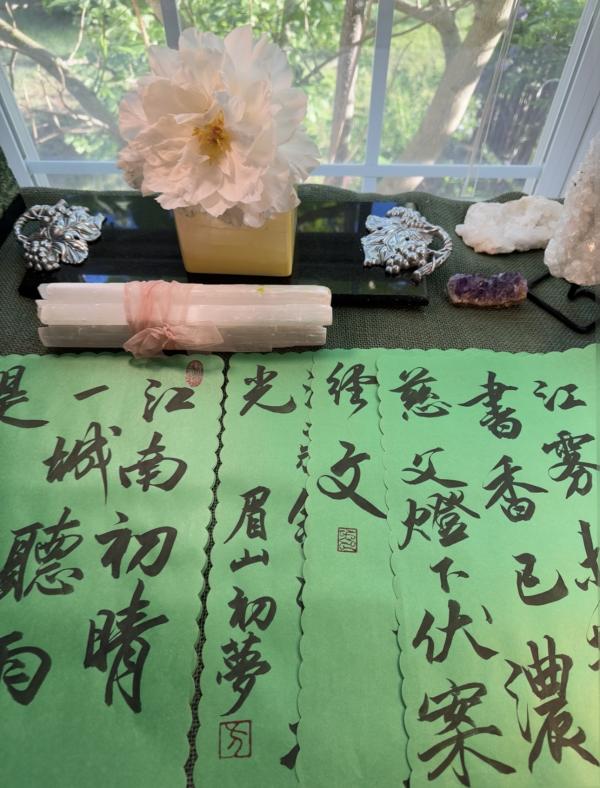 江霧
書香已濃
慈父燈下伏案
經文
光 眉山初夢
江南初晴
一城聽雨
是